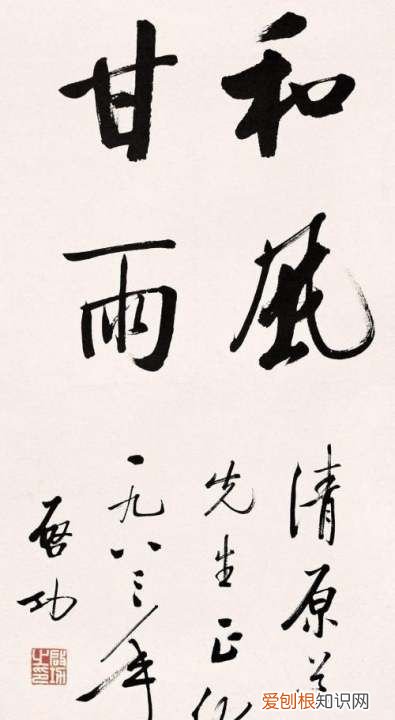 和風
甘雨
清原
先生正
一九八三年
启功
啟功之印
爱刨根知识网